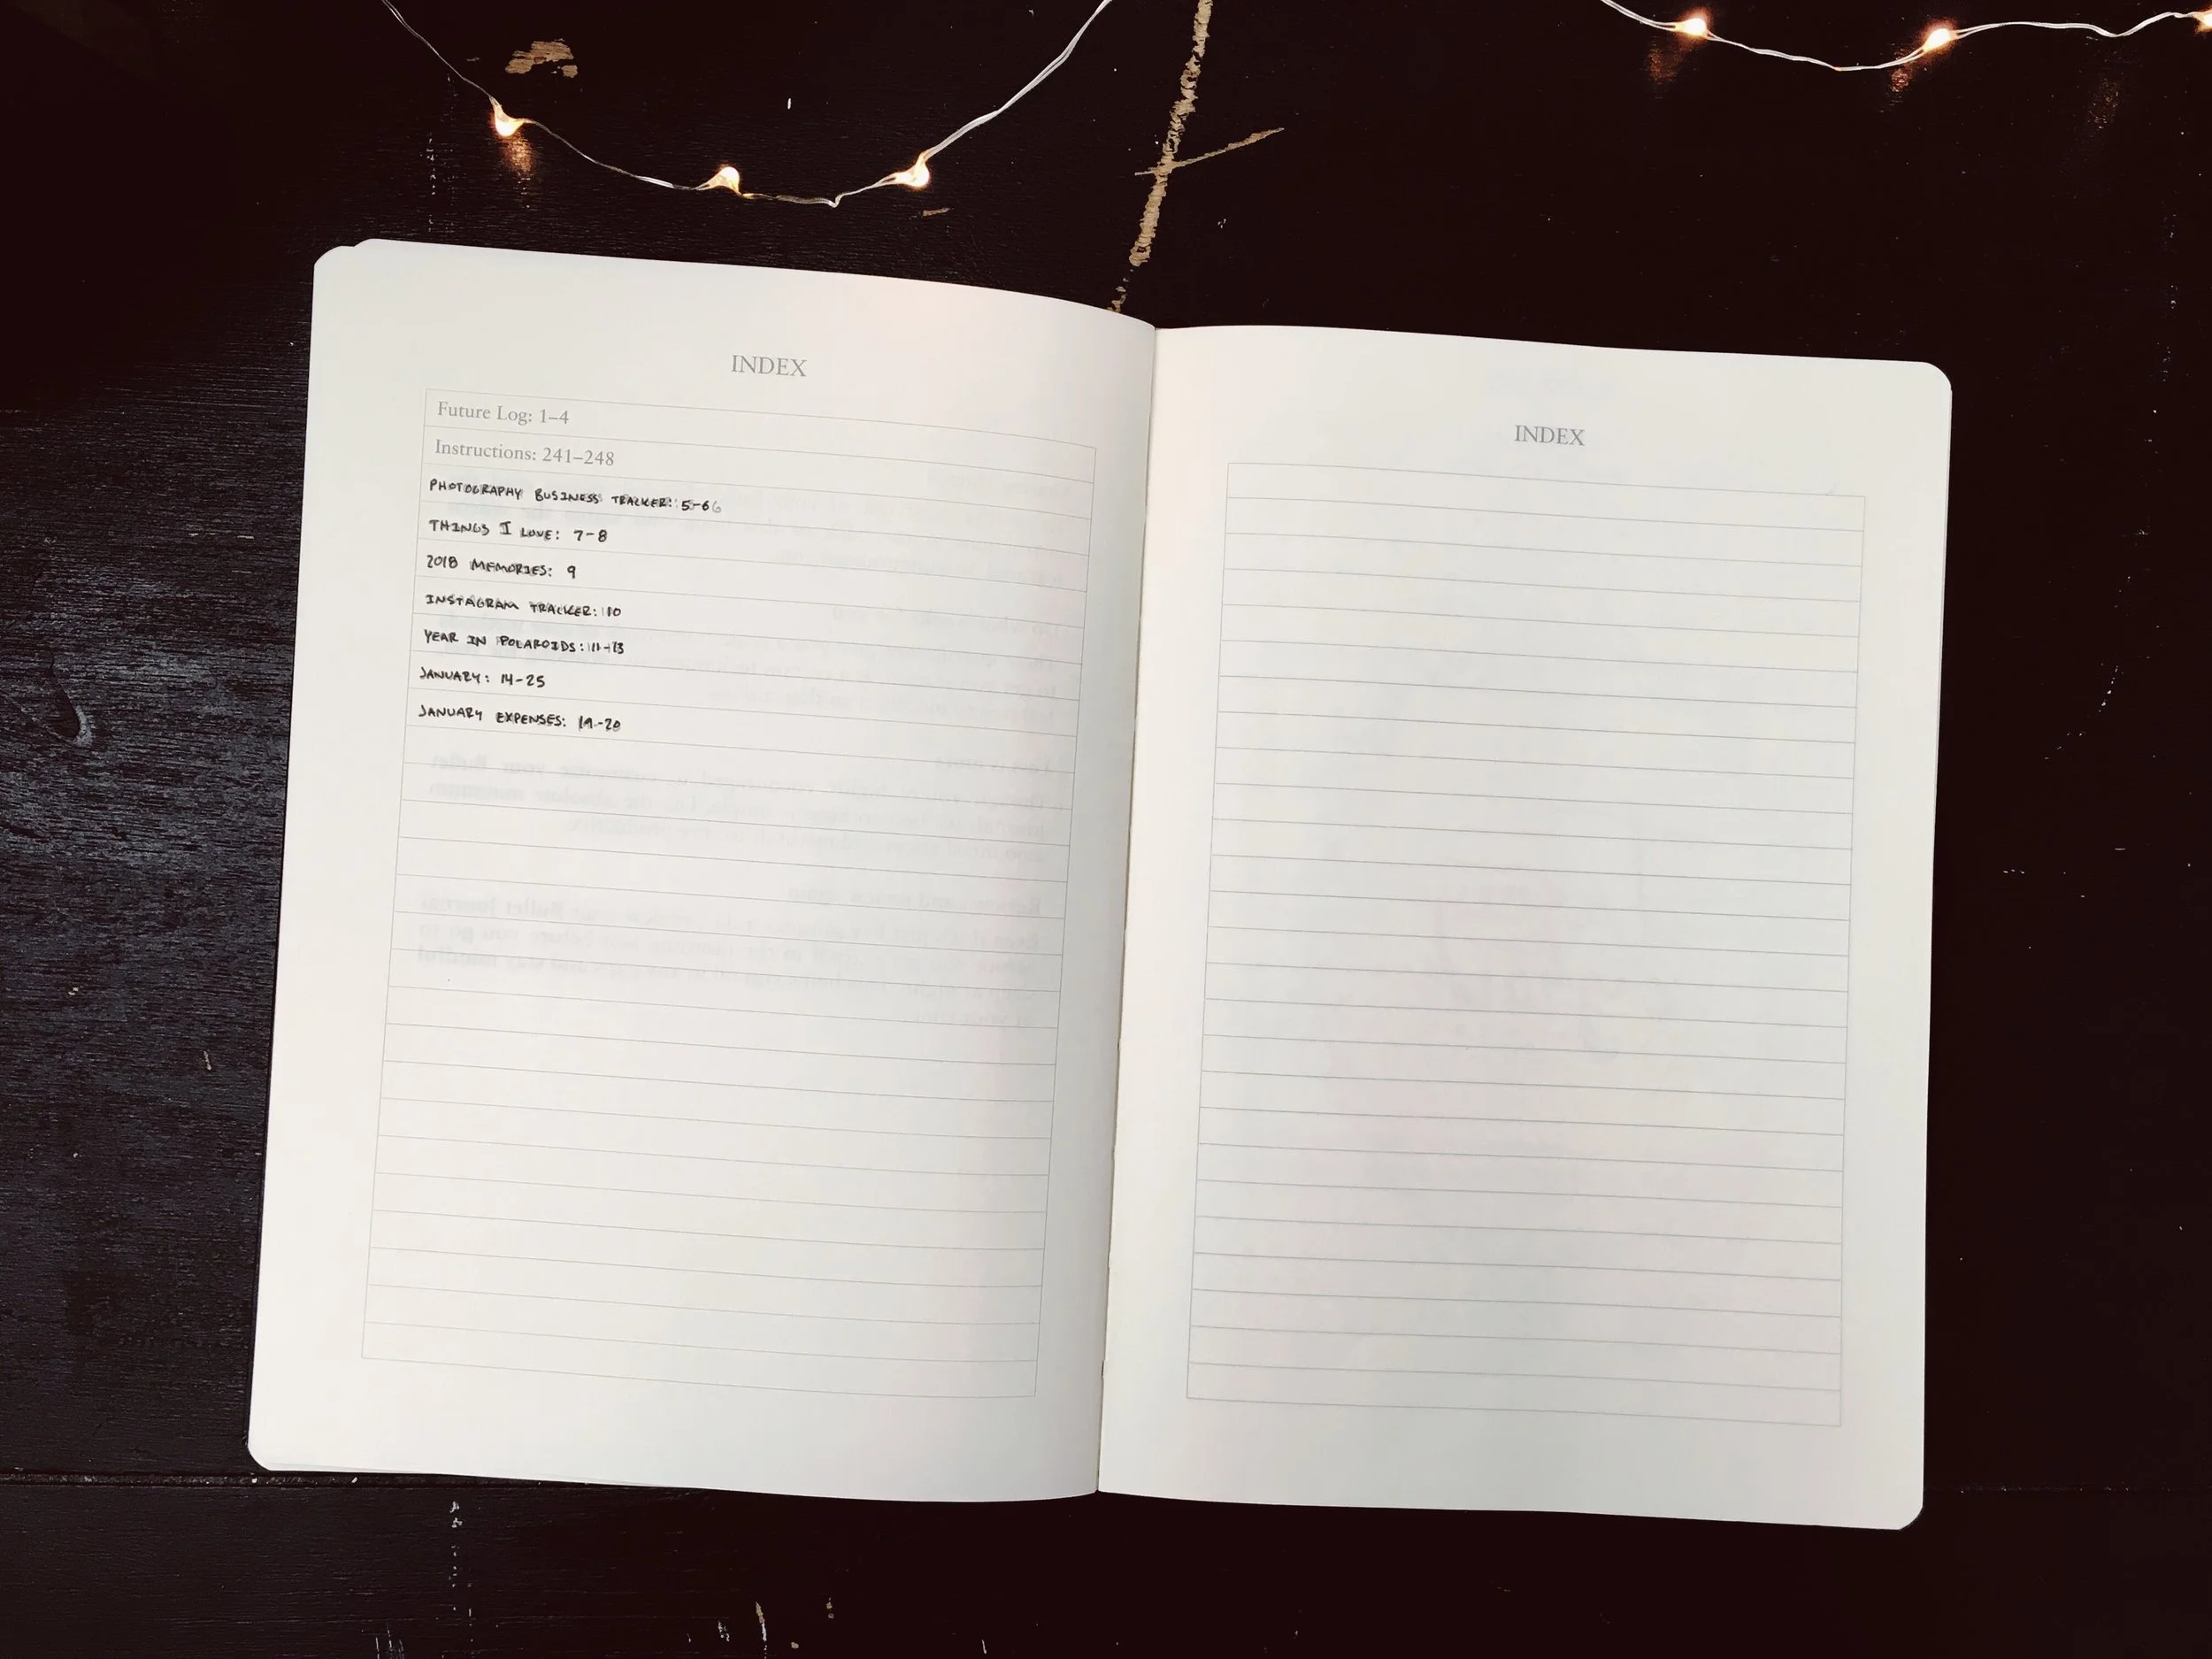 INDEX
Future Log: 1–4
Instructions: 241–248
PHOTOGRAPHY BUSINESS TRACKER: 5-6
THINGS I LOVE: 7-8
2018 MEMORIES: 9
INSTAGRAM TRACKER: 10
YEAR IN POLAROIDS: 11-13
JANUARY: 14-25
JANUARY EXPENSES: 19-20
INDEX